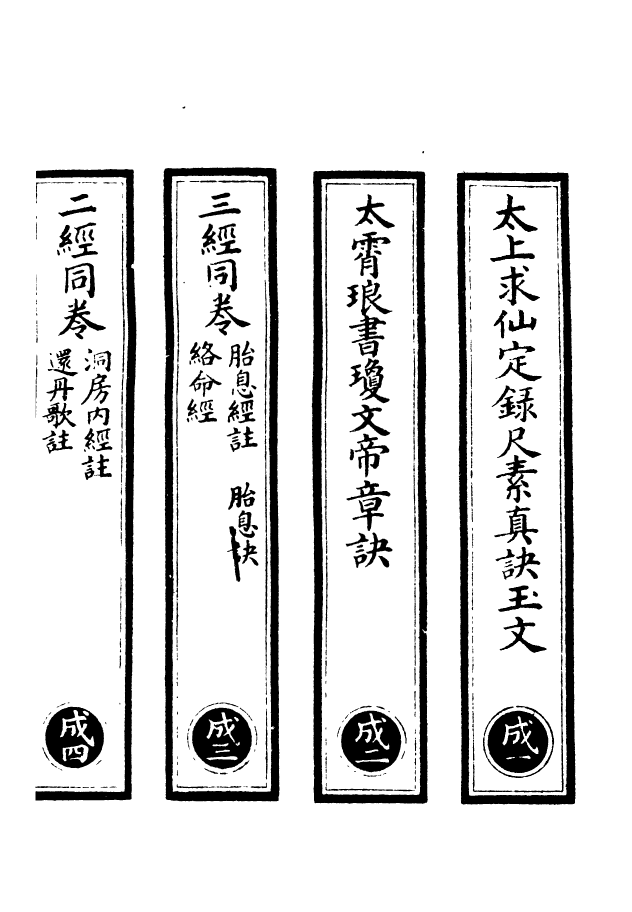 太上求仙定錄尺素真訣玉文
成一
太霄琅書瓊文帝章訣
成二
三經同卷
胎息經註　胎息訣
絡命經
成三
二經同卷
洞房內經註
還丹歌註
成四